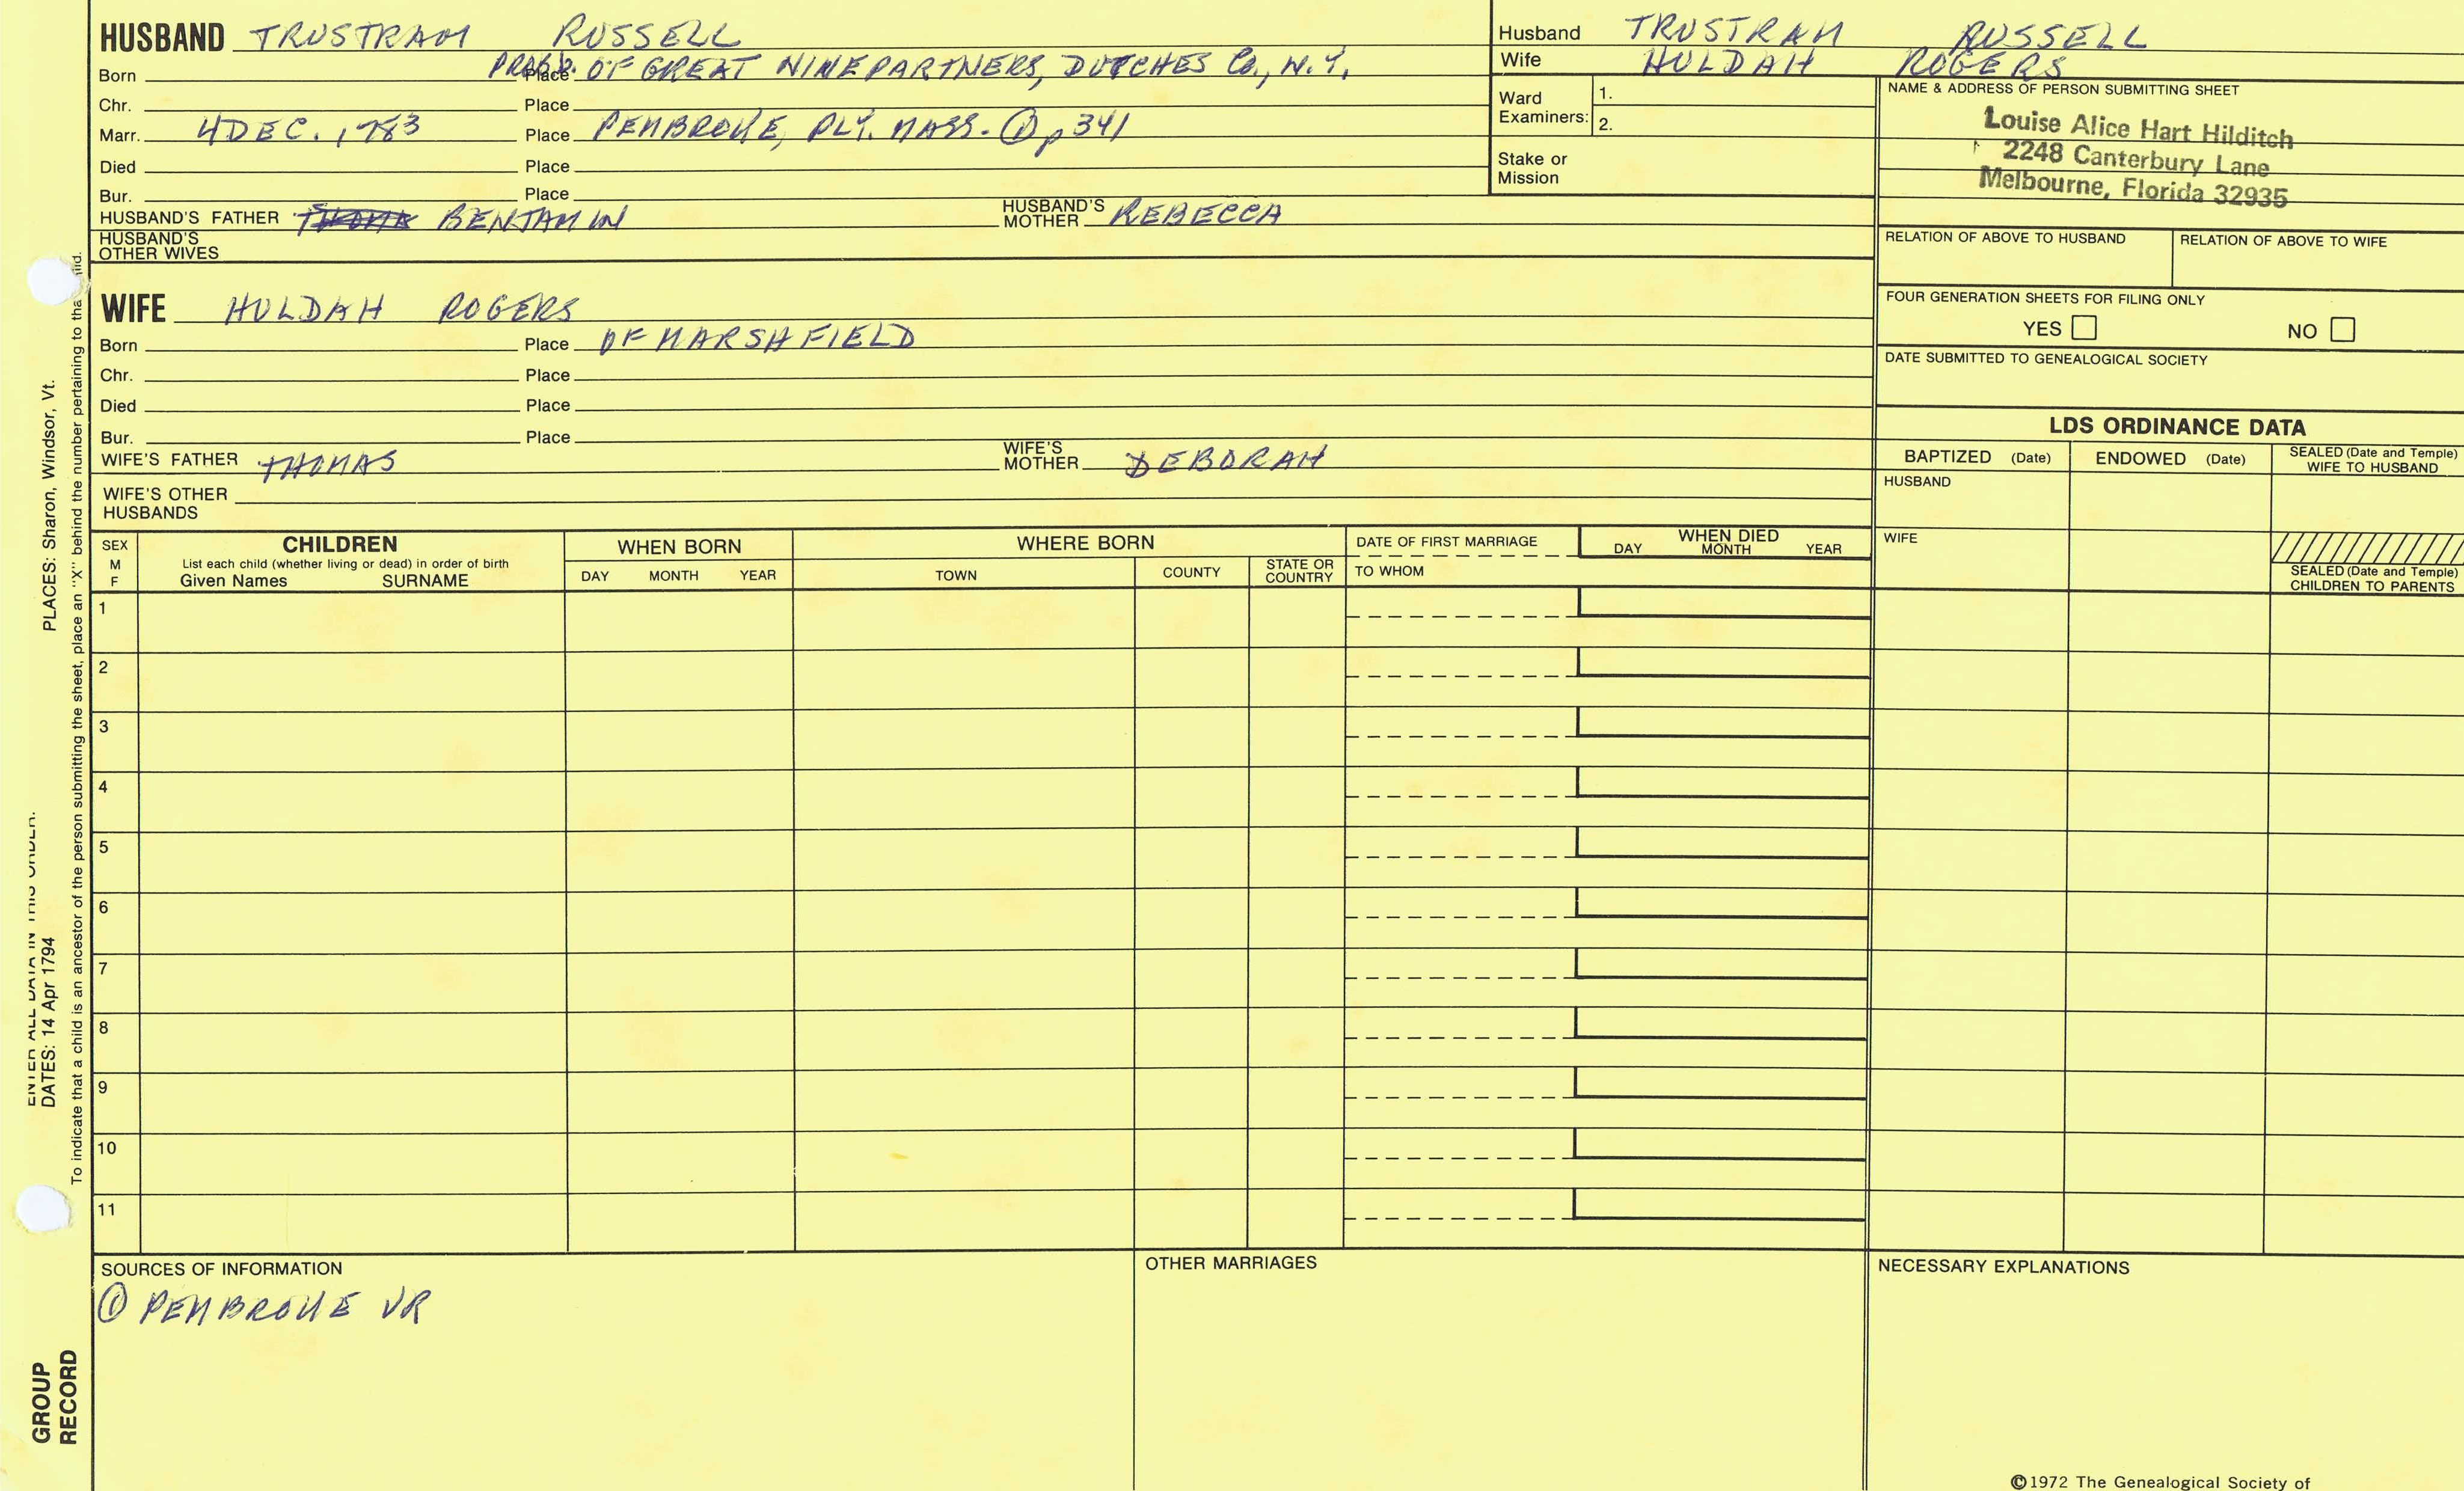 HUSBAND TRUSTRAM RUSSELL
Born Place PROB. OF GREAT NINEPARTNERS, DUTCHES Co., N.Y.
Chr. Place
Marr. 4 DEC. 1783 Place PEMBROKE, PLY. MASS. ① p 341
Died Place
Bur. Place
HUSBAND'S FATHER BENJAMIN HUSBAND'S MOTHER REBECCA
HUSBAND'S OTHER WIVES
Husband TRUSTRAM RUSSELL
Wife HULDAH ROGERS
Ward Examiners: 1.
2.
Stake or Mission
NAME & ADDRESS OF PERSON SUBMITTING SHEET
Louise Alice Hart Hilditch
2248 Canterbury Lane
Melbourne, Florida 32935
RELATION OF ABOVE TO HUSBAND RELATION OF ABOVE TO WIFE
FOUR GENERATION SHEETS FOR FILING ONLY
YES NO
DATE SUBMITTED TO GENEALOGICAL SOCIETY
WIFE HULDAH ROGERS
Born Place OF MARSHFIELD
Chr. Place
Died Place
Bur. Place
WIFE'S FATHER THOMAS WIFE'S MOTHER DEBORAH
WIFE'S OTHER HUSBANDS
LDS ORDINANCE DATA
BAPTIZED (Date) ENDOWED (Date) SEALED (Date and Temple) WIFE TO HUSBAND
HUSBAND
WIFE
SEALED (Date and Temple) CHILDREN TO PARENTS
SEX M F
CHILDREN
List each child (whether living or dead) in order of birth
Given Names SURNAME
WHEN BORN
DAY MONTH YEAR
WHERE BORN
TOWN COUNTY STATE OR COUNTRY
DATE OF FIRST MARRIAGE
TO WHOM
WHEN DIED
DAY MONTH YEAR
1
2
3
4
5
6
7
8
9
10
11
SOURCES OF INFORMATION
① PEMBROKE VR
OTHER MARRIAGES
NECESSARY EXPLANATIONS
©1972 The Genealogical Society of
GROUP RECORD
ENTER ALL DATA IN THIS ORDER.
DATES: 14 Apr 1794 PLACES: Sharon, Windsor, Vt.
To indicate that a child is an ancestor of the person submitting the sheet, place an "X" behind the number pertaining to that child.